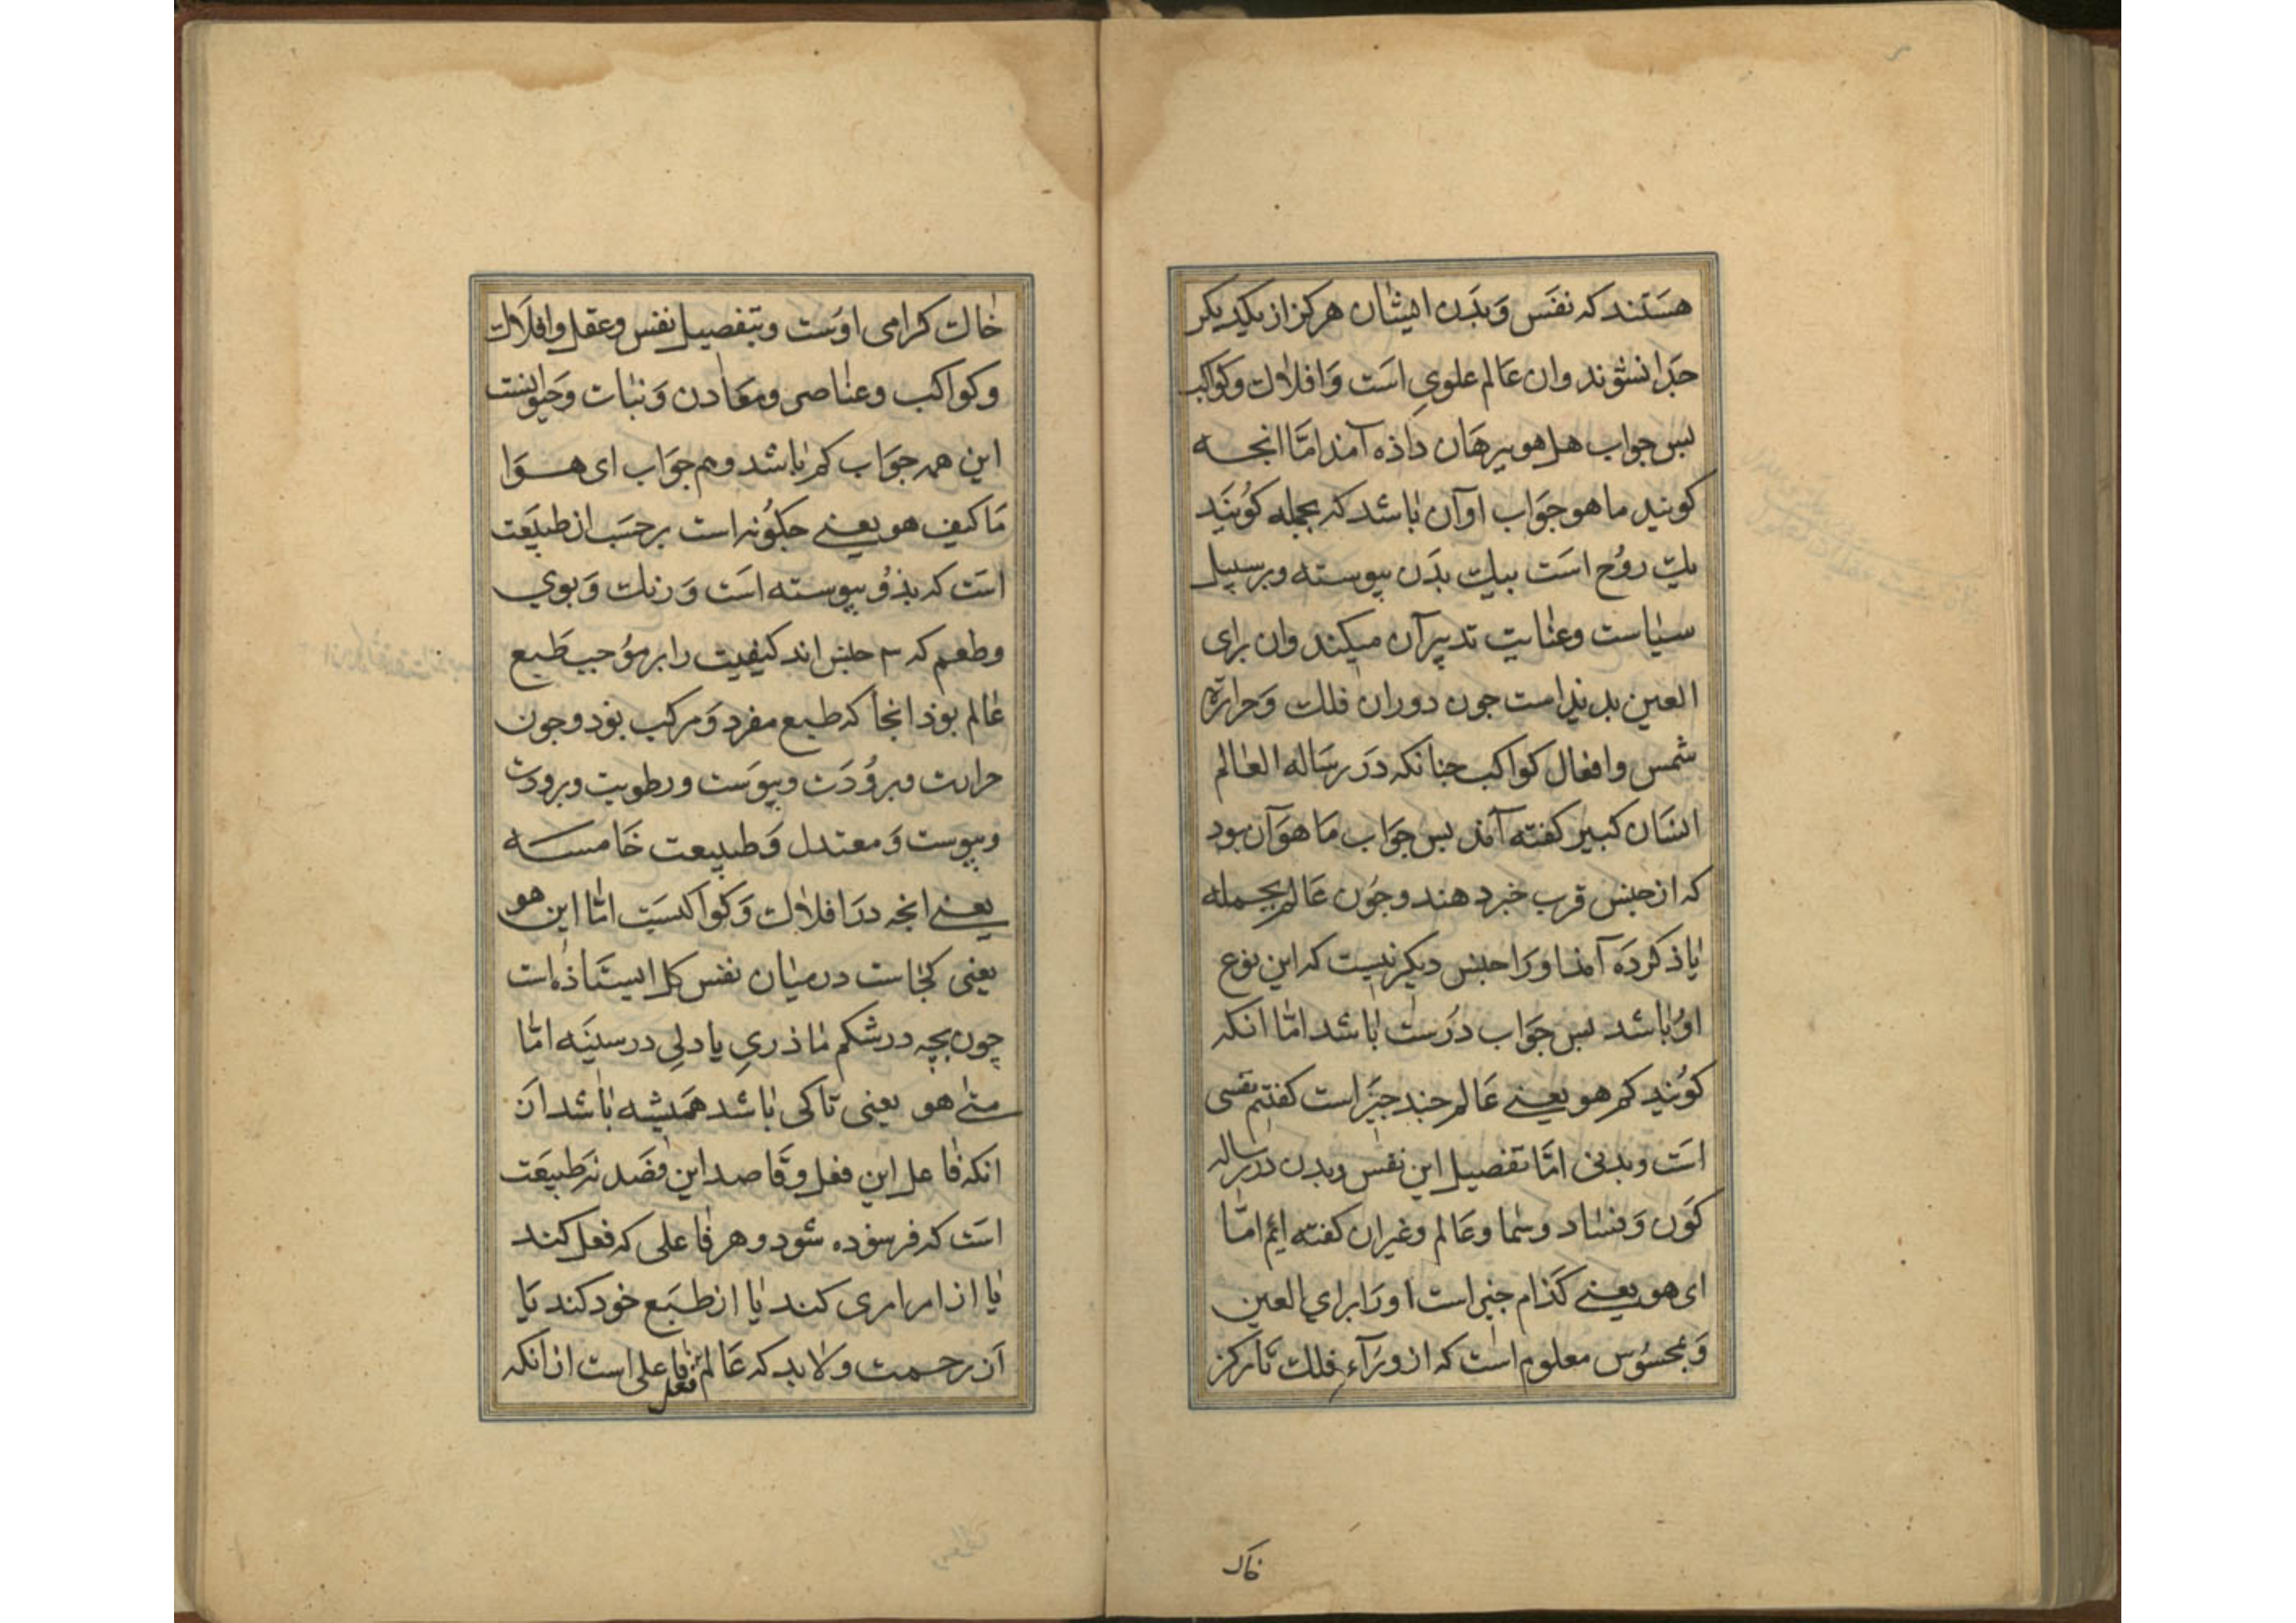 هستند که نفس و بدن ایشان هرکز از یکدیکر
جدا نشوند وان عالم علوی است و افلاک وکواکب
بس جواب هل هو ببرهان داذه آمد اما انجه
کویند ما هو جواب او آن باشد که بجمله کویند
یک روح است بیک بدن بیوسته و بر سبیل
سیاست وعنایت تدبیر آن میکند وان برای
العین بدیداست جون دوران فلک و حرارة
شمس وافعال کواکب جنانکه در رساله العالم
انسان کبیر کفته آمذ بس جواب ما هو آن بود
که از جنس قرب خبر دهند وجون عالم بجمله
یاذ کرده آمذ او را جنس دیکر نیست که این نوع
او باشد بس جواب درست باشد اما انکه
کویند کم هو یعنے عالم جند جیز است کفتیم نفسی
است وبدنی اما تفصیل این نفس وبدن در رساله
کون و فساد و سما وعالم وغیر ان کفته ایم اما
ای هو یعنے کذام جیز است او را برای العین
و بمحسوس معلوم است که از وراء فلک تا مرکز
خاک
خاک کرامی اوست وبتفصیل نفس وعقل وافلاک
وکواکب وعناصر ومعادن و نبات و حیوانست
این همه جواب کم باشد وهم جواب ای هو ا
ما کیف هو یعنے جکونه است بر حسب ان طبیعت
است که بذو بیوسته است و رنک و بوی
وطعم که ۳ جنس اند کیفیت را بر موجب طبع
عالم بوذ انجا که طبع مفرد و مرکب بود وجون
حرارت وبرودت ویبوست ورطوبت وبرودت
ویبوست و معتدل و طبیعت خامسه
یعنے انجه در افلاک و کواکبست اما این هو
یعنی کجاست در میان نفس کل ایستاذه است
چون بچه در شکم ماذری یا دلی در سینه اما
متے هو یعنی تا کی باشد همیشه باشد از
انکه فاعل این فعل وقاصد این قصد نه طبیعت
است که فرسوده شود وهر فاعلی که فعل کند
یا از امر امری کند یا از طبع خود کند یا
از رحمت ولابد که عالم فعل فاعلی است از انکه